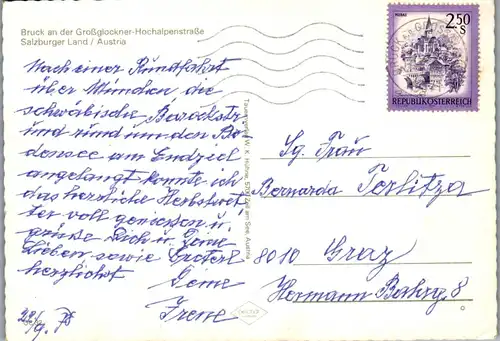 Bruck an der Großglockner-Hochalpenstraße
Salzburger Land / Austria
Nach einer Rundfahrt
über München die
schwäbische Barockstr.
und rund um den Bo
densee am Endziel
angelangt konnte ich
das herrliche Herbstwet
ter voll geniessen u.
grüsse Dich u. Deine
Lieben sowie
herzlichst
Deine
Irene
22/9. 78
Tauernverlag W. K. Hübner, 5700 Zell am See, Austria
MURAU
2.50
S
REPUBLIK ÖSTERREICH
Sg. Frau
Bernarda Terlitza
8010 Graz
Hermann Bahrg. 8